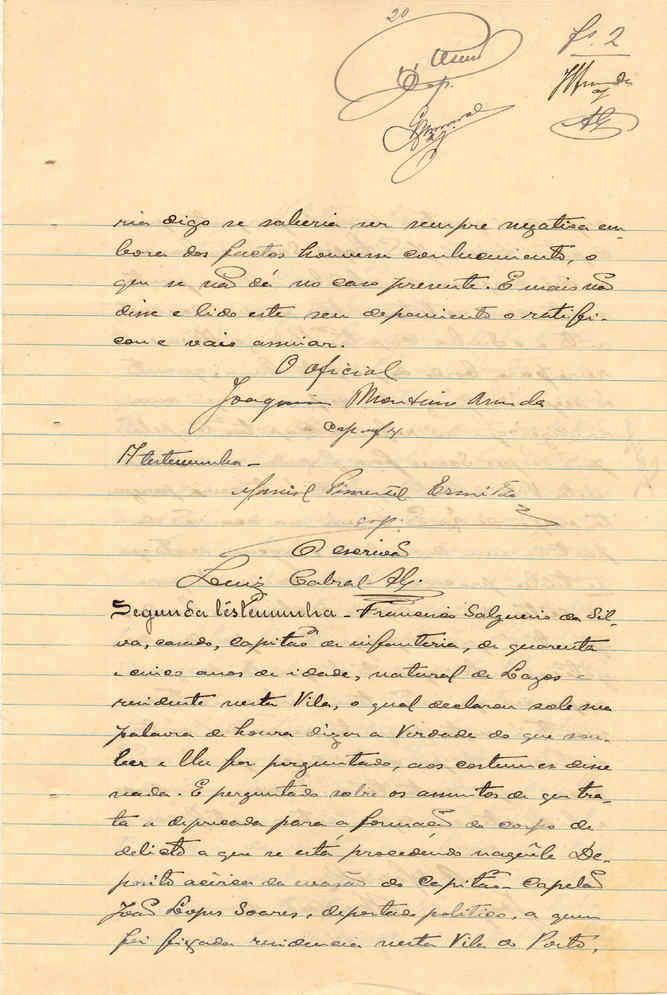 20
fs. 2
ria digo se saberia ser sempre negativa em-
bora dos factos houvesse conhecimento, o
que se não dá no caso presente. E mais não
disse e lido este seu depoimento o ratifi-
cou e vais assinar.
O oficial
Joaquim Monteiro Arruda
A testemunha -
Manoel Pimentel Ermitão
cap.
O escrivão
Leniz Cabral Alf.
Segunda testemunha - Francisco Salgueiro da Sil-
va, casado, capitão de infantaria, de quarenta
e cinco anos de idade, natural de Lagos e
residente nesta Vila, o qual declarou sob sua
palavra de honra dizer a Verdade do que sou-
ber e lhe for perguntado, aos costumes disse
nada. E perguntado sobre os assuntos de que tra-
ta a deprecada para a formação do corpo de
delicto a que se está procedendo naquêle De-
posito acêrca da evasão do Capitão - Capelão
João Lopes Soares, deportado politico, a quem
foi fixada residencia nesta Vila do Porto,